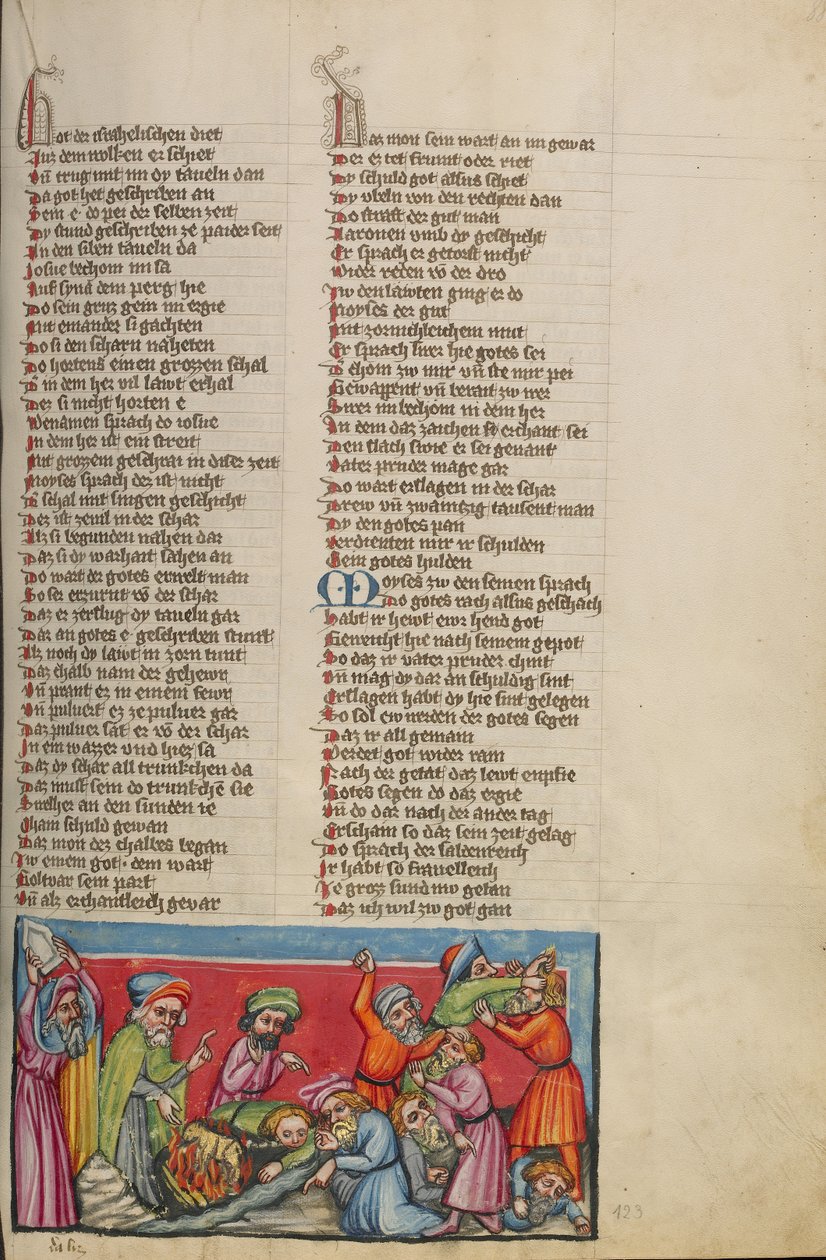 Got der israhelischen diet
Auz dem wolken er schiet
Vn̄ trug mit im dy taueln dan
Da got het geschriben an
Sein e do pei der selben zeit
Dy stund geschriben ze paider seit
In den siben taueln da
Iosue bechom im sa
Auf synai dem perg hie
Do sein gruz gein im ergie
Mit einander si gachten
Do si den scharn naheten
Do hortens einen grozzen schal
D' in dem her vil lawt erhal
Dez si nicht horten e
Benamen sprach do iosue
In dem her ist ein streit
Mit grozzem geschrai in diser zeit
Moyses sprach dez ist nicht
D' schal mit singen geschicht
Dez ist zeuil in der schar
Alz si begunden nahen dar
Daz si dy warhait sahen an
Do wart der gotes erwelt man
So ser erzurnt vō der schar
Daz er zerslug dy taueln gar
Dar an gotes e geschriben stunt
Alz noch dy lawt in zorn tunt
Daz chalb nam der gehewr
Vn̄ prant ez in einem fewr
Vn̄ puluert ez ze puluer gar
Daz puluer sat er vō der schar
In ein wazzer vnd hiez sa
Daz dy schar all trunkchen da
Daz must sein do trunkchē sie
Swelher an den sunden ie
Cham schuld gewan
Daz mon dez chalbes began
Iw einem got dem wart
Goltvar sein part
Vn̄ alz erchantleich gevar
Daz mon sein wart an im gewar
Der ez tet frumt oder riet
Dy schuld got alsus schiet
Dy vbeln von den rechten dan
Do straft der gut man
Aaronen vmb dy geschicht
Er sprach er getorst nicht
Wider reden vō der dro
Zw den lawten ging er do
Moyses der gut
Mit zornichleichem mut
Er sprach swer hie gotes sei
D' chom zw mir vn̄ ste mir pei
Gewappent vn̄ berait zw wer
Swer im bechom in dem her
An dem daz zaichen erchant sei
Den slach swie er sei genant
Vater pruder mage gar
Do wart erslagen in der schar
Drew vn̄ zwaintzig tausent man
Dy den gotes pan
Verdienten mir ir schulden
Sein gotes hulden
Moyses zw den seinen sprach
Do gotes rach alsus geschach
Habt ir hewt ewr hend got
Geweicht hie nach seinem gepot
So daz ir vater pruder chint
Vn̄ mag dy dar an schuldig sint
Erslagen habt dy hie sint gelegen
So sol ew werden der gotes segen
Daz ir all gemain
Werdet got wider rain
Nach der getat daz lewt enpfie
Gotes segen do daz ergie
Vn̄ do dar nach der ander tag
Erscham so daz sein zeit gelag
Do sprach der saldenreich
Ir habt so frauelleich
Ie groz sund nw getan
Daz ich wil zw got gan
123